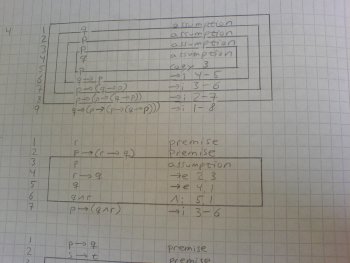 4
1 q assumption
2 p assumption
3 p assumption
4 q assumption
5 p copy 3
6 q→p →i 4-5
7 p→(q→p) →i 3-6
8 p→(p→(q→p)) →i 2-7
9 q→(p→(p→(q→p))) →i 1-8
1 r premise
2 p→(r→q) premise
3 p assumption
4 r→q →e 2 3
5 q →e 4,1
6 q∧r ∧i 5,1
7 p→(q∧r) →i 3-6
1 p→q premise
2 s→t premise